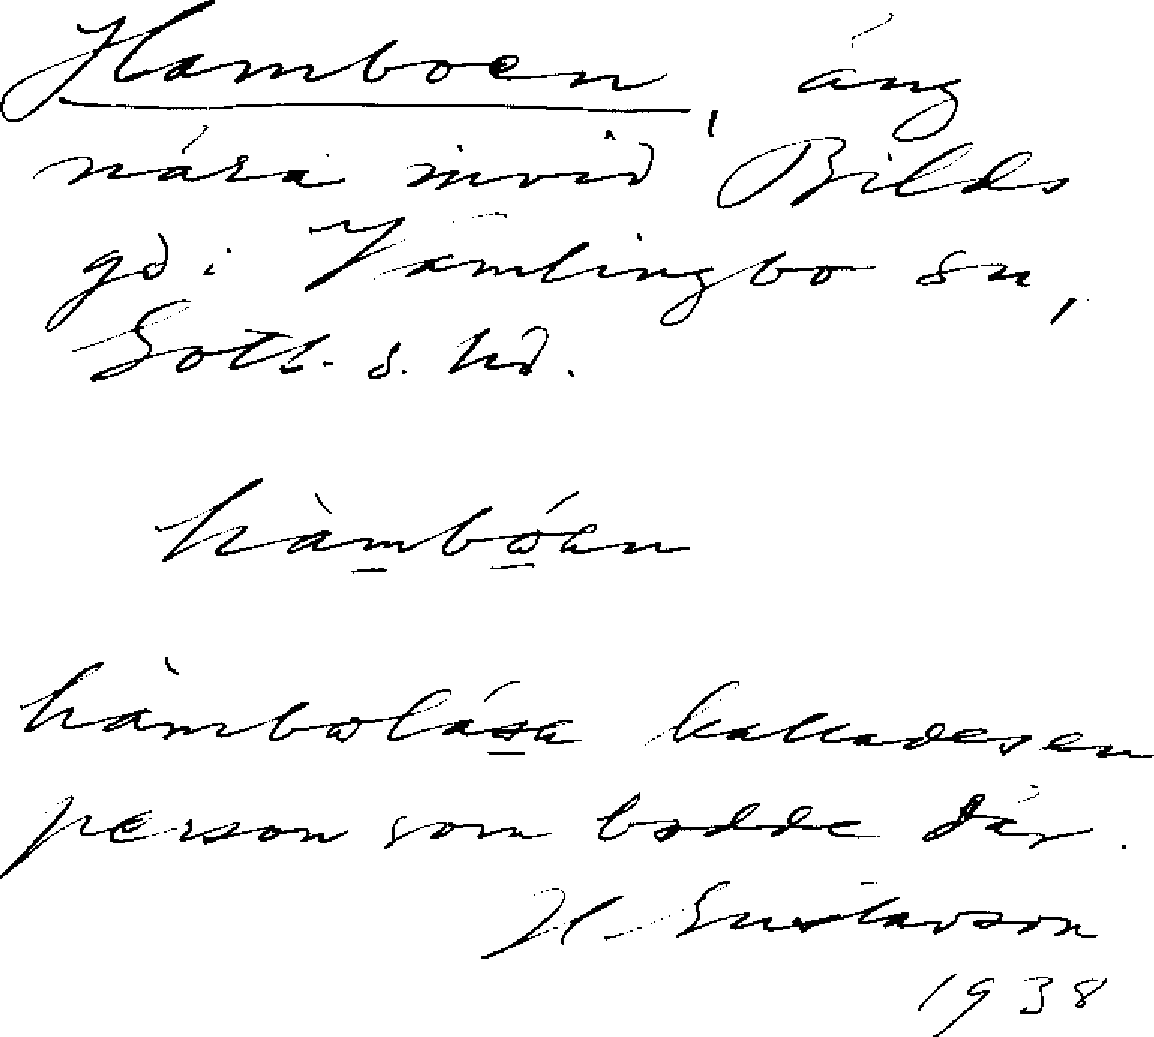 Hamboen, äng
nära invid Bilds
gd i Vamlingbo sn,
Gotl. s. hd.
hàmbóen
hàmbolása kallades en
person som bodde där.
H. Gustavson
1938